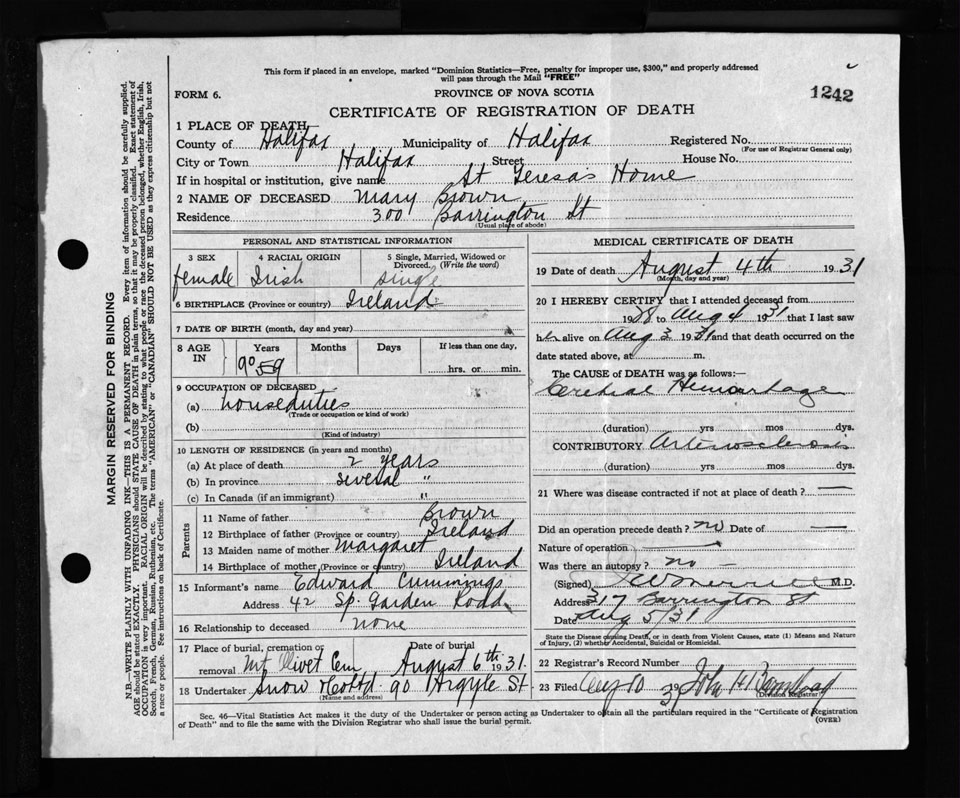 This form if placed in an envelope, marked "Dominion Statistics—Free, penalty for improper use, $300," and properly addressed
will pass through the Mail "FREE"
FORM 6. PROVINCE OF NOVA SCOTIA 1242
CERTIFICATE OF REGISTRATION OF DEATH
1 PLACE OF DEATH
County of Halifax Municipality of Halifax Registered No.
(For use of Registrar General only)
City or Town Halifax Street House No.
If in hospital or institution, give name St Teresas Home
2 NAME OF DECEASED Mary Brown
Residence 300 Barrington St
(Usual place of abode)
PERSONAL AND STATISTICAL INFORMATION
3 SEX 4 RACIAL ORIGIN 5 Single, Married, Widowed or
Divorced. (Write the word)
female Irish single
6 BIRTHPLACE (Province or country) Ireland
7 DATE OF BIRTH (month, day and year)
8 AGE IN Years Months Days If less than one day,
90 59 hrs. or min.
9 OCCUPATION OF DECEASED
(a) houseduties
(Trade or occupation or kind of work)
(b)
(Kind of industry)
10 LENGTH OF RESIDENCE (in years and months)
(a) At place of death 2 years
(b) In province several "
(c) In Canada (if an immigrant) "
Parents
11 Name of father Brown
12 Birthplace of father (Province or country) Ireland
13 Maiden name of mother Margaret
14 Birthplace of mother (Province or country) Ireland
15 Informant's name Edward Cummings
Address 42 Sp. Garden Road
16 Relationship to deceased none
17 Place of burial, cremation or removal Date of burial
Mt Olivet Cem August 6th 1931.
18 Undertaker Snow & Co Ltd 90 Argyle St
(Name and address)
MEDICAL CERTIFICATE OF DEATH
19 Date of death August 4th 1931
(Month, day and year)
20 I HEREBY CERTIFY that I attended deceased from
1928 to Aug 4 1931 that I last saw
her alive on Aug 3 1931 and that death occurred on the
date stated above, at m.
The CAUSE of DEATH was as follows:—
Cerebral Hemorrhage
(duration) yrs mos dys.
CONTRIBUTORY Arteriosclerosis
(duration) yrs mos dys.
21 Where was disease contracted if not at place of death? —
Did an operation precede death? no Date of —
Nature of operation —
Was there an autopsy? no —
(Signed) M.D.
Address 317 Barrington St
Date Aug 5/31
State the Disease causing Death, or in death from Violent Causes, state (1) Means and Nature
of Injury, (2) whether Accidental, Suicidal or Homicidal.
22 Registrar's Record Number
23 Filed Aug 10 John H
Sec. 46—Vital Statistics Act makes it the duty of the Undertaker or person acting as Undertaker to obtain all the particulars required in the "Certificate of Registration
of Death" and to file the same with the Division Registrar who shall issue the burial permit. (OVER)
MARGIN RESERVED FOR BINDING
N.B.—WRITE PLAINLY WITH UNFADING INK—THIS IS A PERMANENT RECORD. Every item of information should be carefully supplied.
AGE should be stated EXACTLY. PHYSICIANS should STATE CAUSE OF DEATH in plain terms, so that it may be properly classified. Exact statement of
OCCUPATION is very important. RACIAL ORIGIN will be described by stating to what people or race the deceased person belonged, whether English, Irish,
Scotch, French, German, Russian, Ruthenian, etc. The terms "AMERICAN" or "CANADIAN" SHOULD NOT BE USED as they express citizenship but not
a race or people. See instructions on back of Certificate.